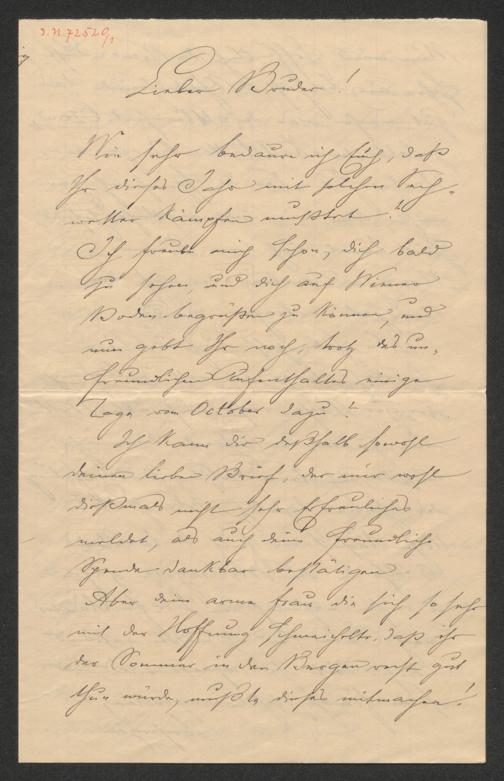 I.N. 72520/1
Lieber Bruder!
Wie sehr bedaure ich Euch, daß
Ihr dieses Jahr mit solchem
wetter kämpfen mußtet!
Ich freute mich schon, dich bald
zu sehen, und dich auf Wiener
Boden begrüßen zu können, und
nun gebt Ihr noch, trotz des un-
freundlichen Aufenthaltes einige
Tage vom October dazu!
Ich kann dir deßhalb sowohl
deinen lieben Brief, der mir wohl
dießmals nicht sehr Erfreuliches
meldet, als auch deine freundliche
Spende dankbar bestätigen.
Aber deine arme Frau die sich so sehr
mit der Hoffnung schmeichelte, daß ihr
der Sommer in den Bergen recht gut
thun würde, mußte dieses mitmachen!